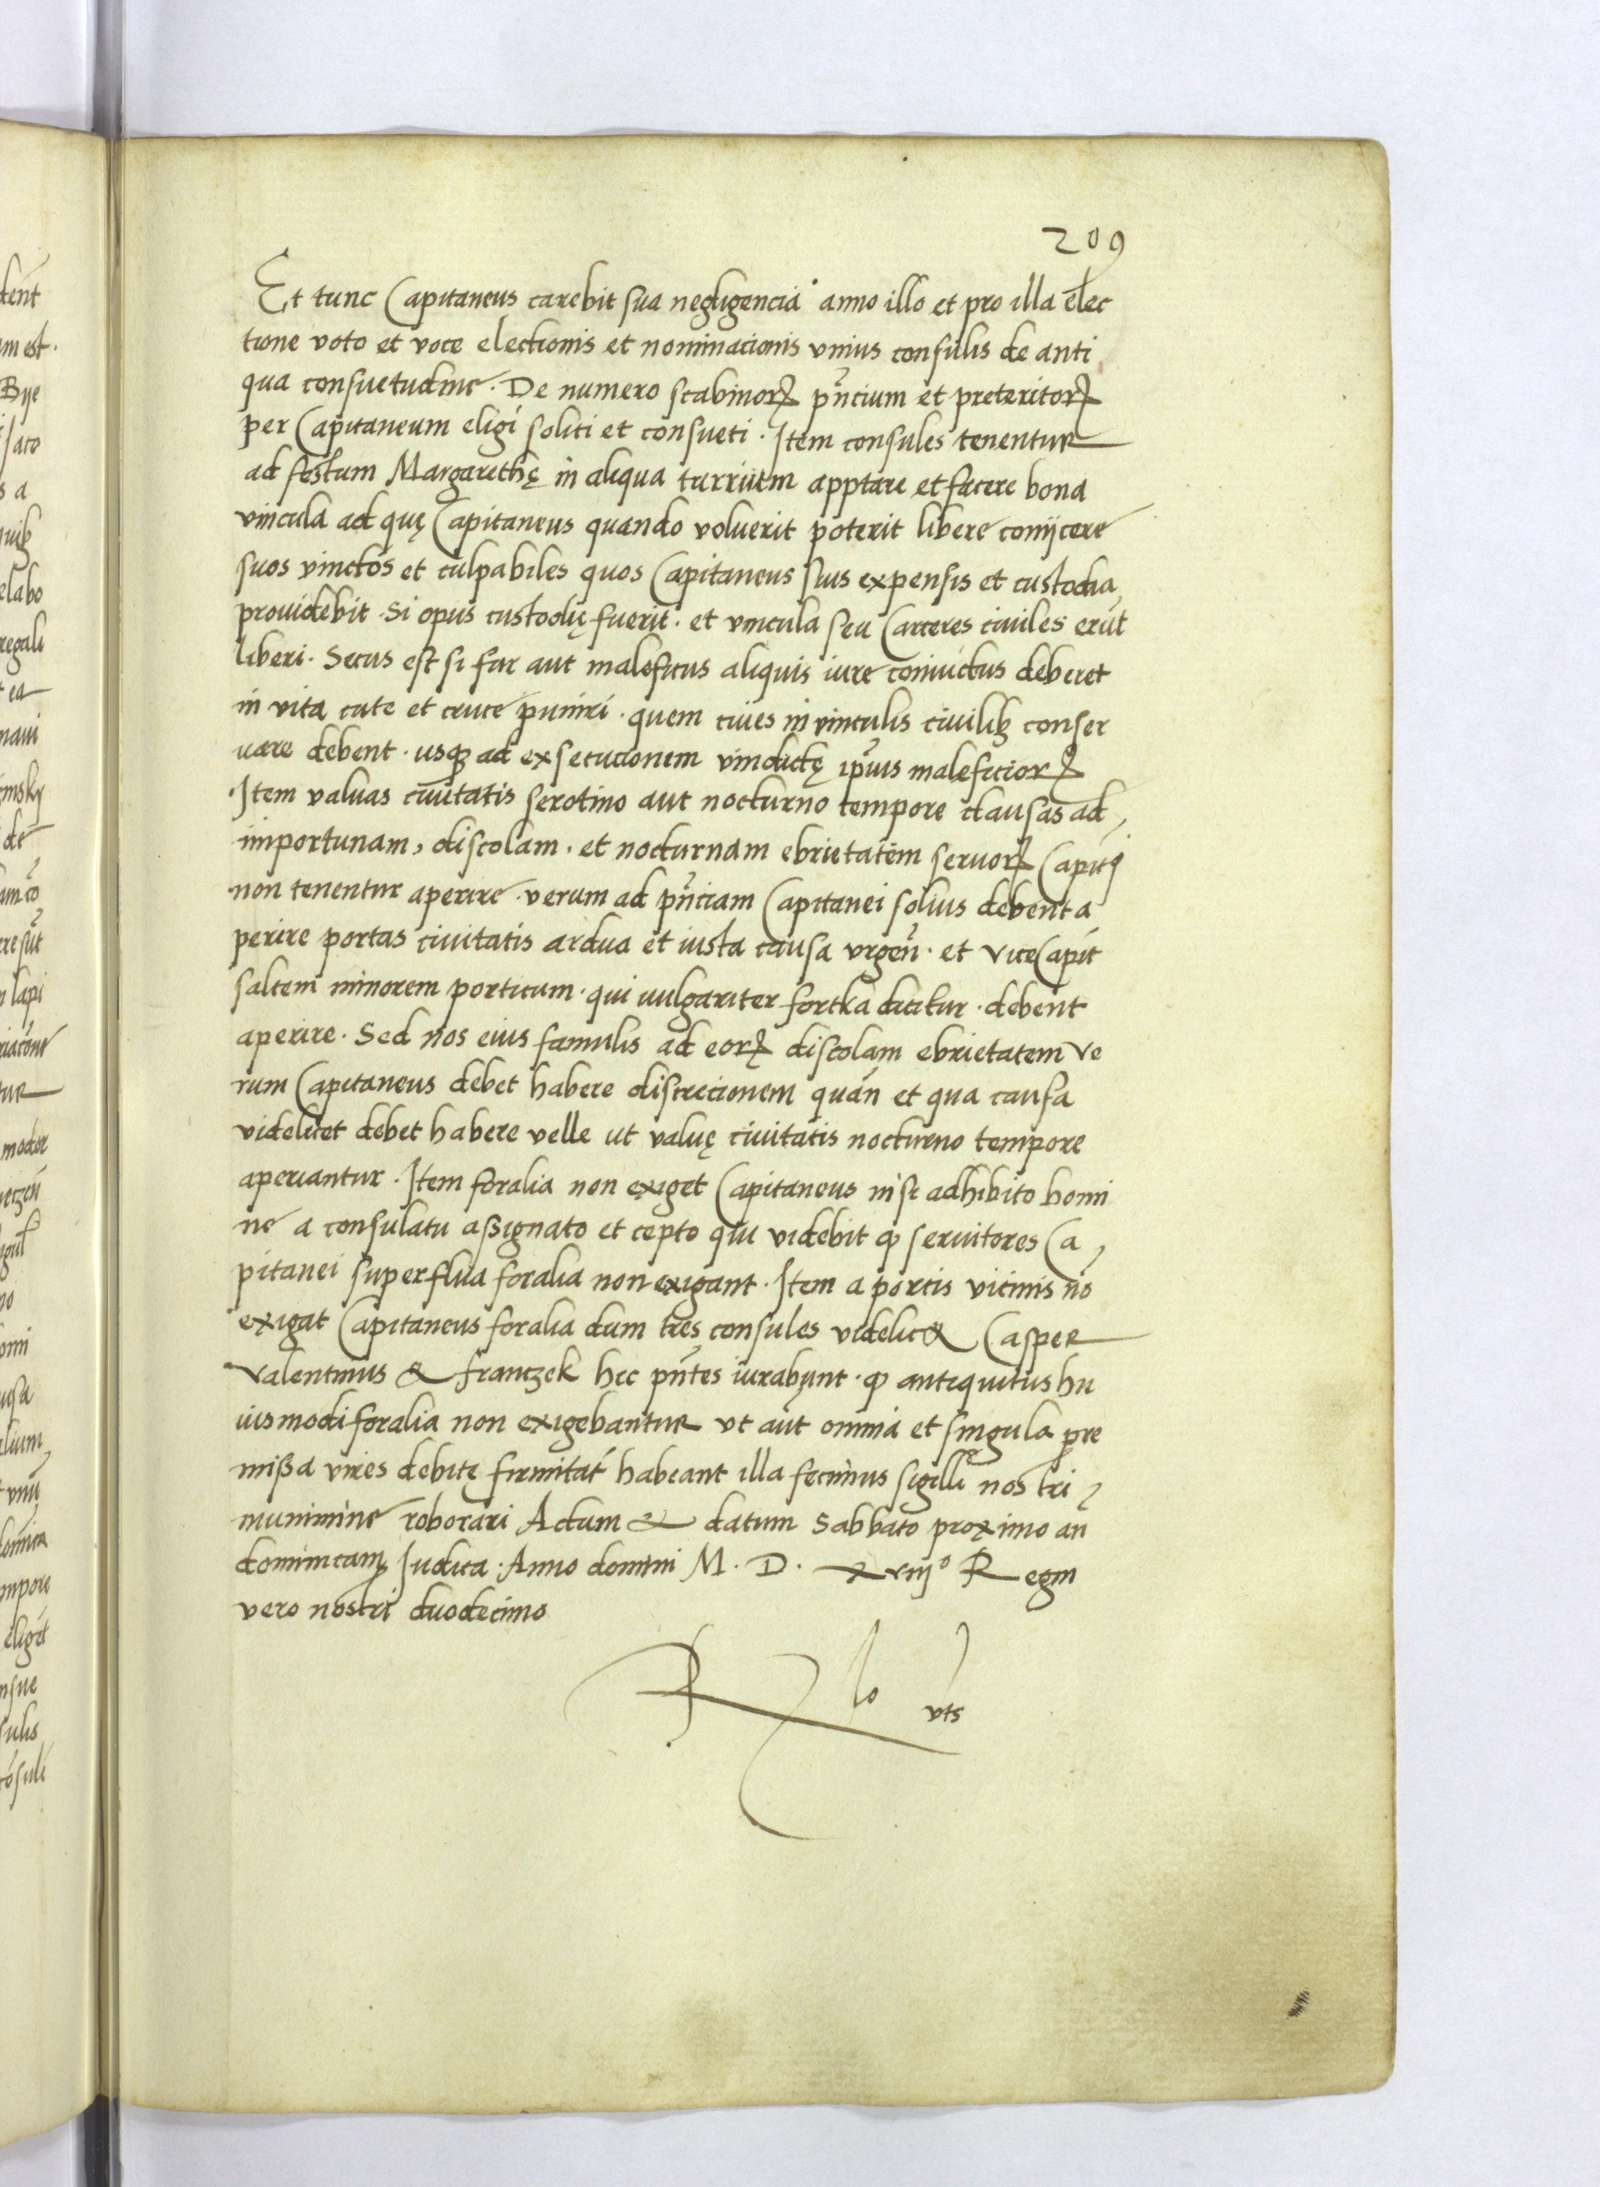 209
Et tunc Capitaneus carebit sua negligencia anno illo et pro illa elec
tione voto et voce electionis et nominacionis vnius consulis de anti
qua consuetudine. De numero scabinorꝝ pn̄cium et preteritorꝝ
per Capitaneum eligi soliti et consueti. Item consules tenentur
ad festum Margarethę in aliqua turrium apptare et facere bona
vincula ad quę Capitaneus quando voluerit poterit libere coniicere
suos vinctos et culpabiles quos Capitaneus suis expensis et custodia
prouidebit. Si opus custodię fuerit. et vincula seu Carceres ciuiles erūt
liberi. Secus est si fur aut maleficus aliquis iure conuictus deberet
in vita cute et cruce puniri. quem ciues in vinculis ciuilibꝫ conser
uare debent. usqꝫ ad exsecucionem vindictę ip̄ius maleficiorꝝ
Item valuas ciuitatis serotino aut nocturno tempore clausas ad
importunam, discolam. et nocturnam ebrietatem seruorꝝ Capit
non tenentur aperire. verum ad pn̄ciam Capitanei solius debent a
perire portas ciuitatis ardua et iusta causa vrgen̄. et ViceCapit
saltem minorem porticum. qui uulgariter fortka dicitur. debent
aperire. Sed nos eius famulis ad eorꝝ discolam ebrietatem Ve
rum Capitaneus debet habere discrecionem quan̄ et qua causa
videlicet debet habere velle ut valuę ciuitatis nocturno tempore
aperiantur. Item foralia non exiget Capitaneus nisi adhibito homi
ne a consulatu assignato et cepto qui videbit ꝙ seruitores Ca
pitanei superflua foralia non exigant. Item a portis vicinis nō
exigat Capitaneus foralia dum tres consules videlicet Casper
Valentinus & Franczek hec pn̄tes iurabunt. ꝙ antiquitus hu
iusmodi foralia non exigebantur vt aūt omnia et singula pre
missa vires debitę firmitat̄ habeant illa fecimus sigilli nostri
munimine roborari Actum & datum Sabbato proximo an
dominicam Iudica. Anno domini M. D. xviiiº Regni
vero nostri duodecimo